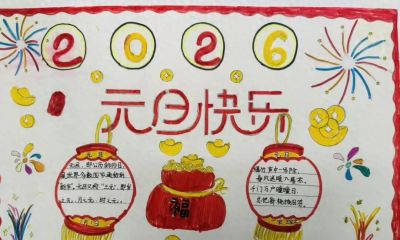 2026
元旦快乐
元旦
元旦
元旦，即公历的1月1日，
是世界多数国家通称的
新年。元旦又称“三元”，即岁
之元、月之元、时之元。
爆竹声中一岁除，
春风送暖入屠苏。
千门万户曈曈日，
总把新桃换旧符。
福